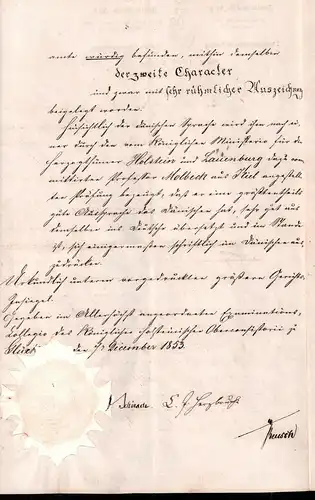 amte würdig befunden, mithin demselben
der zweite Character
und zwar mit sehr rühmlicher Auszeichnung
beigelegt worden.
Hinsichtlich der dänischen Sprache wird ihm nach ei-
ner durch den vom Königlichen Ministerio für die
Herzogthümer Holstein und Lauenburg dazu com-
mittirten Professor Molbech aus Kiel angestell-
ten Prüfung bezeugt, daß er eine größtentheils
gute Aussprache des Dänischen hat, sehr gut aus
demselben ins Deutsche übersetzt und im Stande
ist, sich einigermaßen schriftlich im Dänischen aus-
zudrücken.
Urkundlich unterm vorgedruckten größern Gerichts-
Insiegel.
Gegeben im Allerhöchst angeordneten Examinations-
Collegio des Königlichen holsteinischen Oberconsistorii zu
der December 1853.